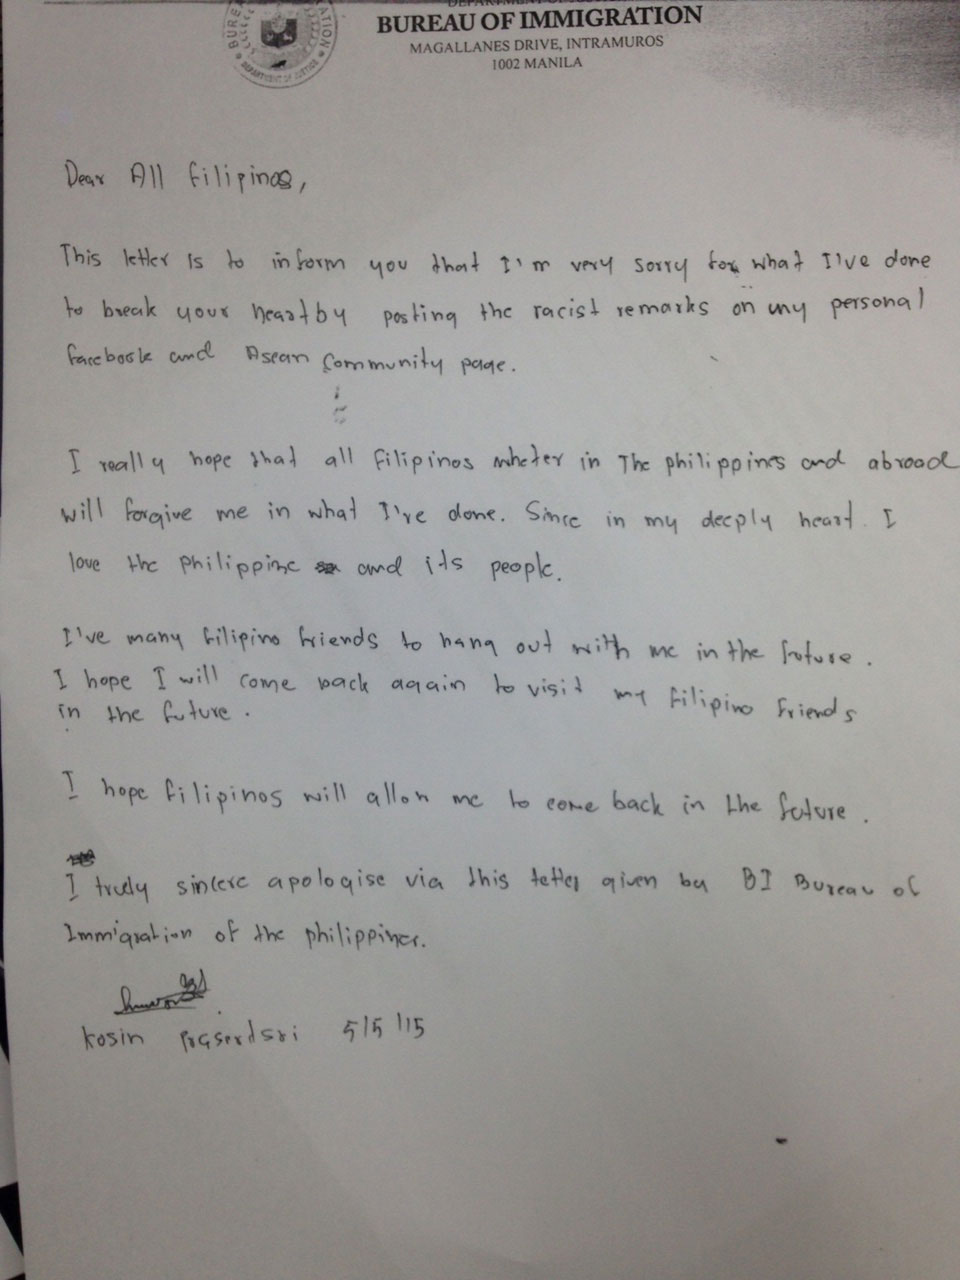 BUREAU OF IMMIGRATION
MAGALLANES DRIVE, INTRAMUROS
1002 MANILA
DEPARTMENT OF JUSTICE
Dear All filipinos,
This letter is to inform you that I'm very sorry for what I've done
to break your heart by posting the racist remarks on my personal
facebook and Asean Community page.
I really hope that all filipinos wheter in The philippines and abroad
will forgive me in what I've done. Since in my deeply heart. I
love the philippine and its people.
I've many filipino friends to hang out with me in the future.
I hope I will come back again to visit my filipino friends
in the future.
I hope filipinos will allow me to come back in the future.
I truly sincere apologise via this letter given by BI Bureau of
Immigration of the philippines.
Kosin Prasertsri 5/5/15